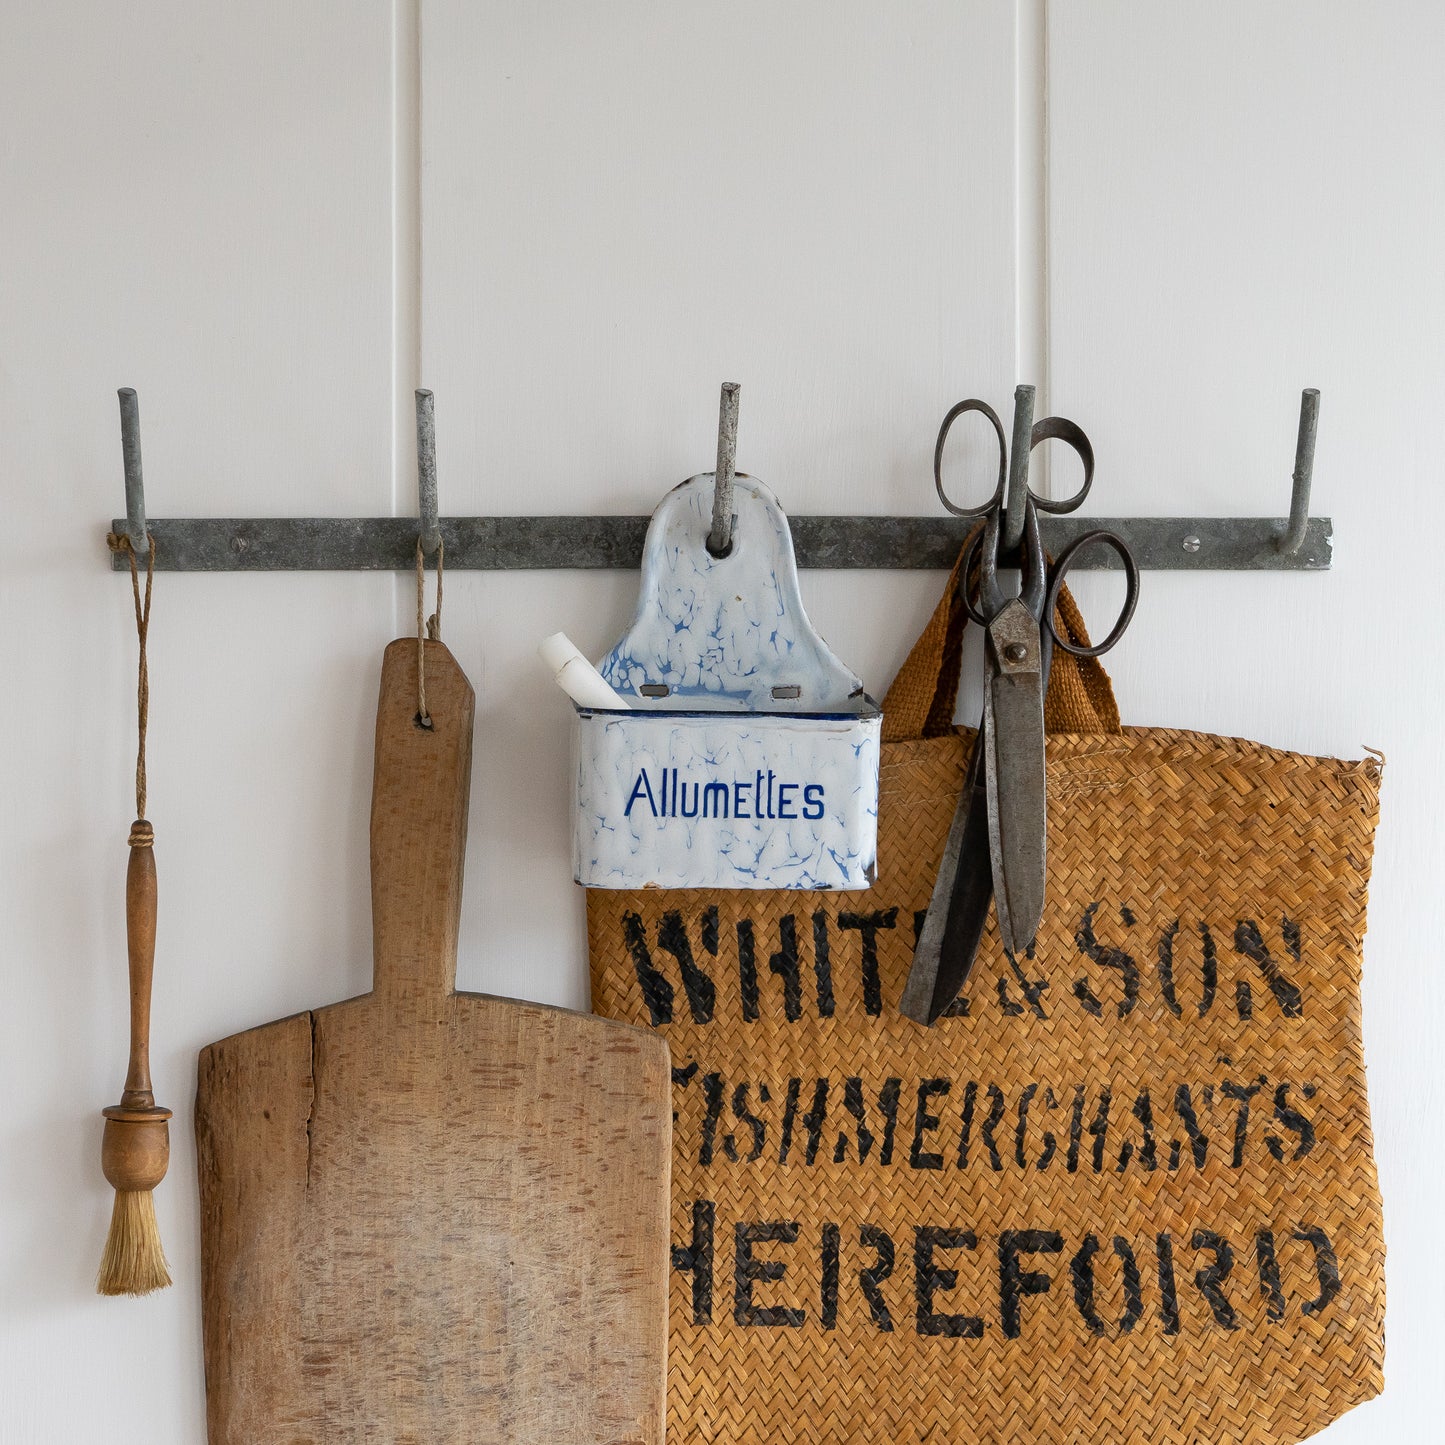 Allumettes
WHITE & SON
FISHMERCHANTS
HEREFORD